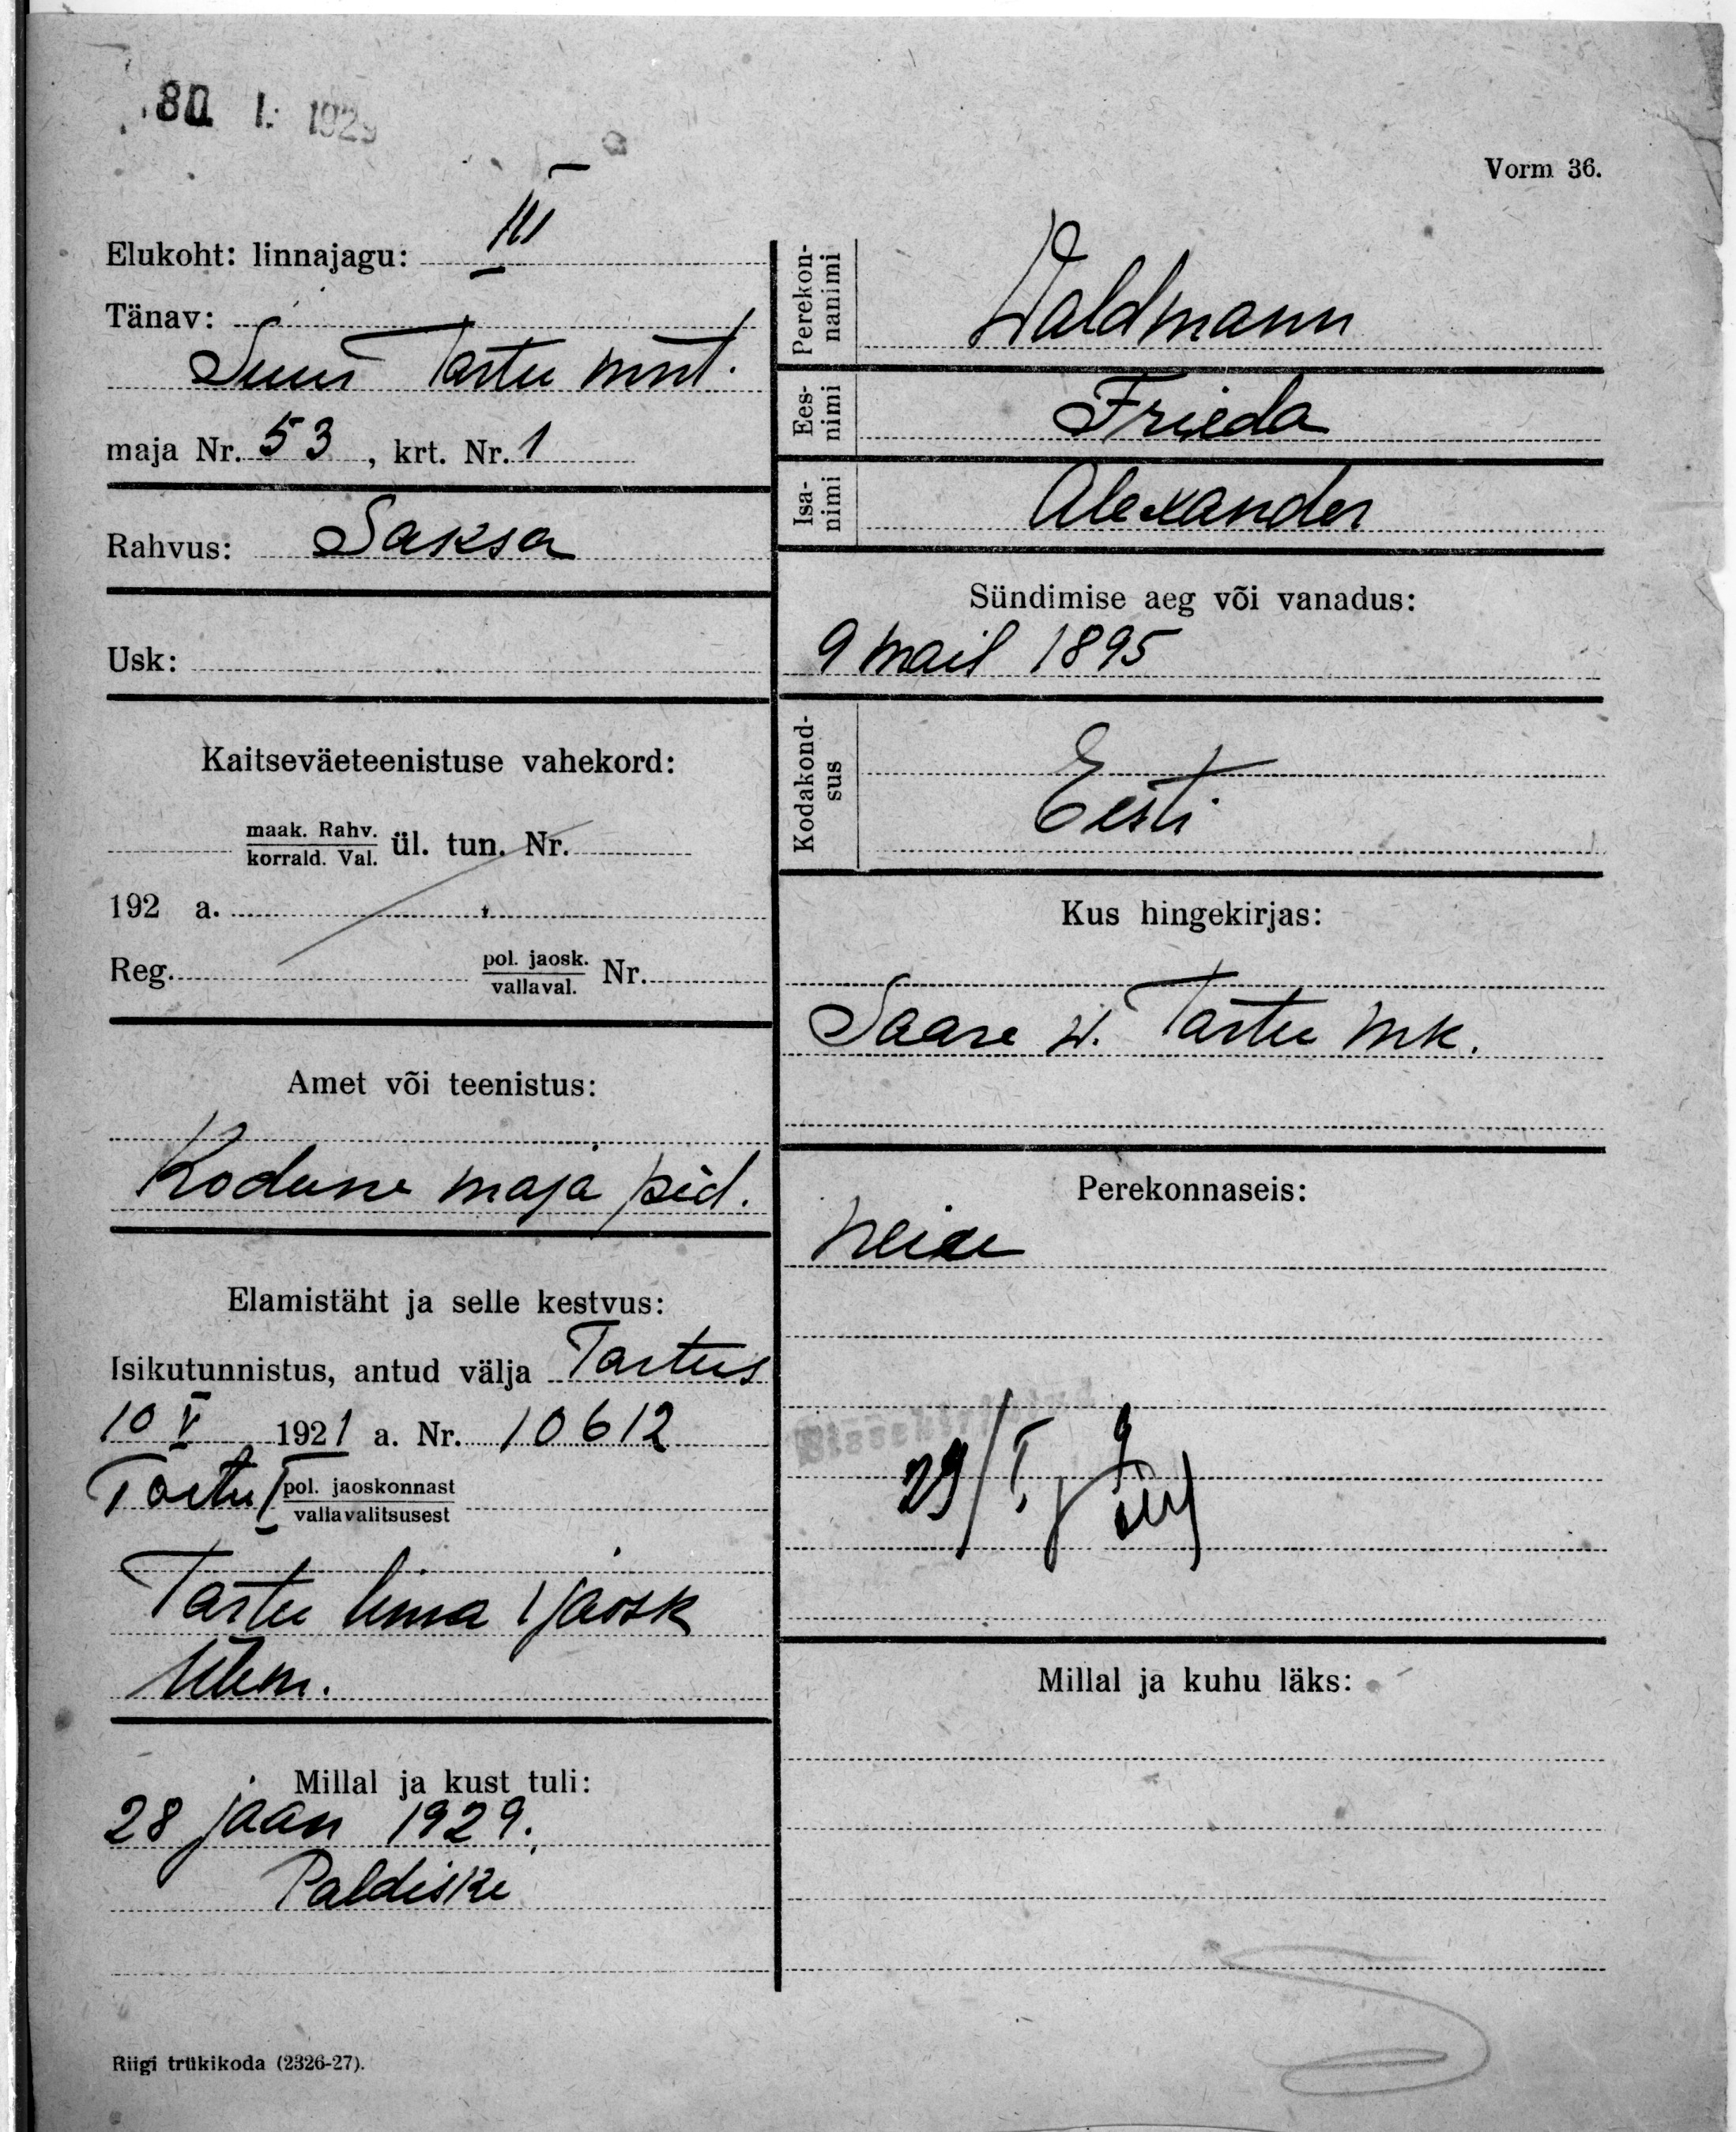 30. I. 1929
Vorm 36.
Elukoht: linnajagu: III
Tänav:
Suur Tartu mnt.
maja Nr. 53, krt. Nr. 1
Rahvus: Saksa
Usk:
Kaitseväeteenistuse vahekord:
maak. Rahv.
korrald. Val.
ül. tun. Nr.
192 a.
Reg. pol. jaosk. Nr.
vallaval.
Amet või teenistus:
Kodune maja pid.
Elamistäht ja selle kestvus:
Isikutunnistus, antud välja Tartus
10 V 1921 a. Nr. 10612
Tartu I pol. jaoskonnast
vallavalitsusest
Tartu linna I jaosk
Ülem.
Millal ja kust tuli:
28 jaan 1929.
Paldiski
Riigi trükikoda (2326-27).
Perekon-
nanimi
Waldmann
Ees-
nimi
Frieda
Isa-
nimi
Alexander
Sündimise aeg või vanadus:
9 mail 1895
Kodakond-
sus
Eesti
Kus hingekirjas:
Saare w. Tartu mk.
Perekonnaseis:
neiu
Sissekirjutatud
29/I 9
Millal ja kuhu läks: